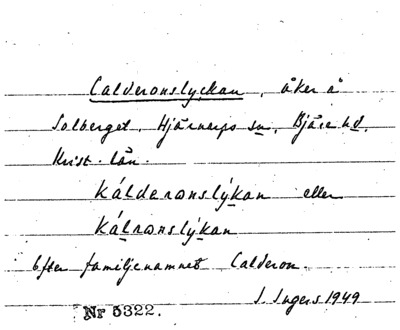 Calderonslyckan, åker å
Solberget, Hjärnarps sn, Bjäre hd,
Krist. län.
kálderonslýkan eller
kálronslýkan
Efter familjenamnet Calderon.
I. Ingers 1949
Nr 5322.